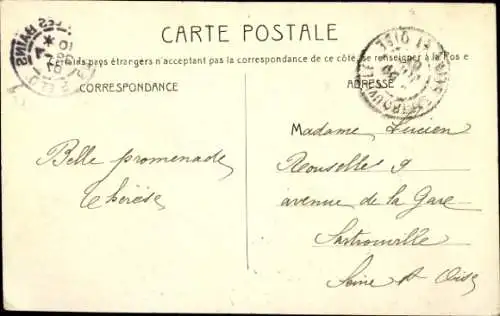 CARTE POSTALE
pays étrangers n'acceptant pas la correspondance de ce côté, se renseigner à la Pos e
CORRESPONDANCE
ADRESSE
Belle promenade
Thérèse
Madame Lucien
9
avenue de la Gare
Sartrouville
Seine et Oise